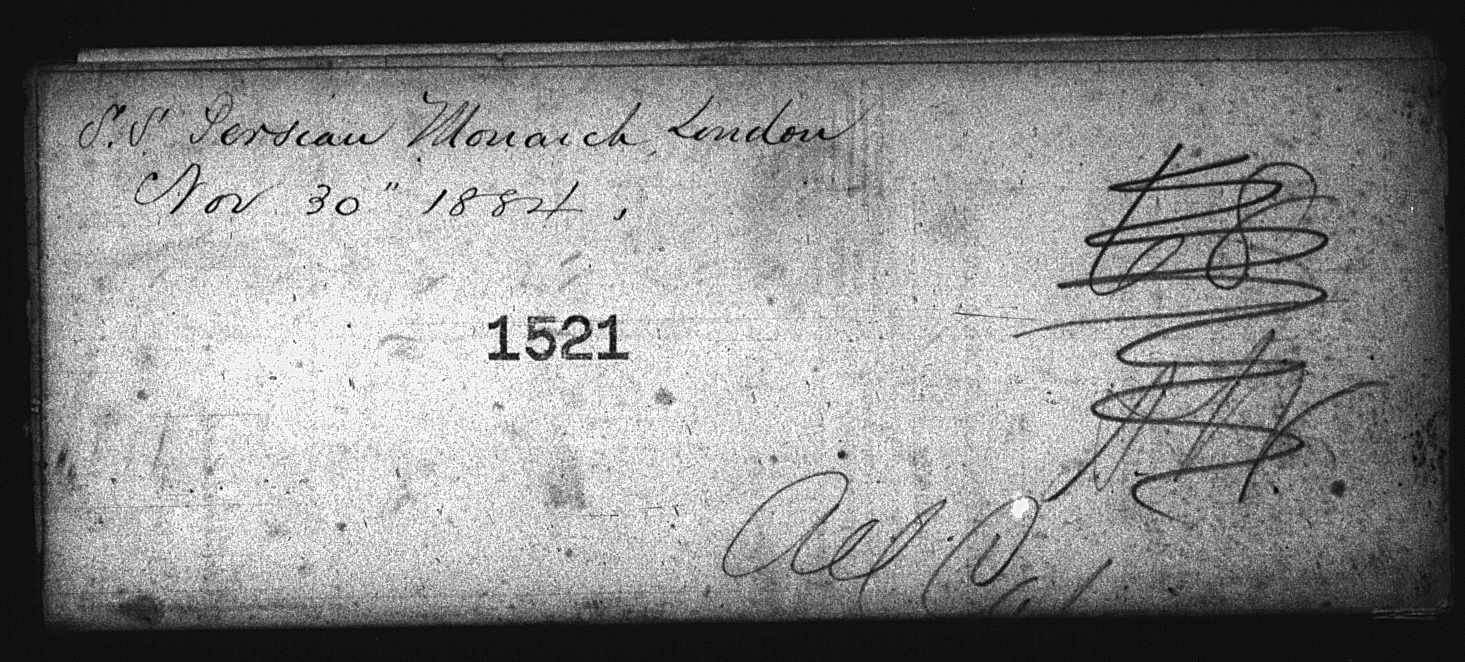 S.S. Persian Monarch, London
Nov 30" 1884,
1521
All